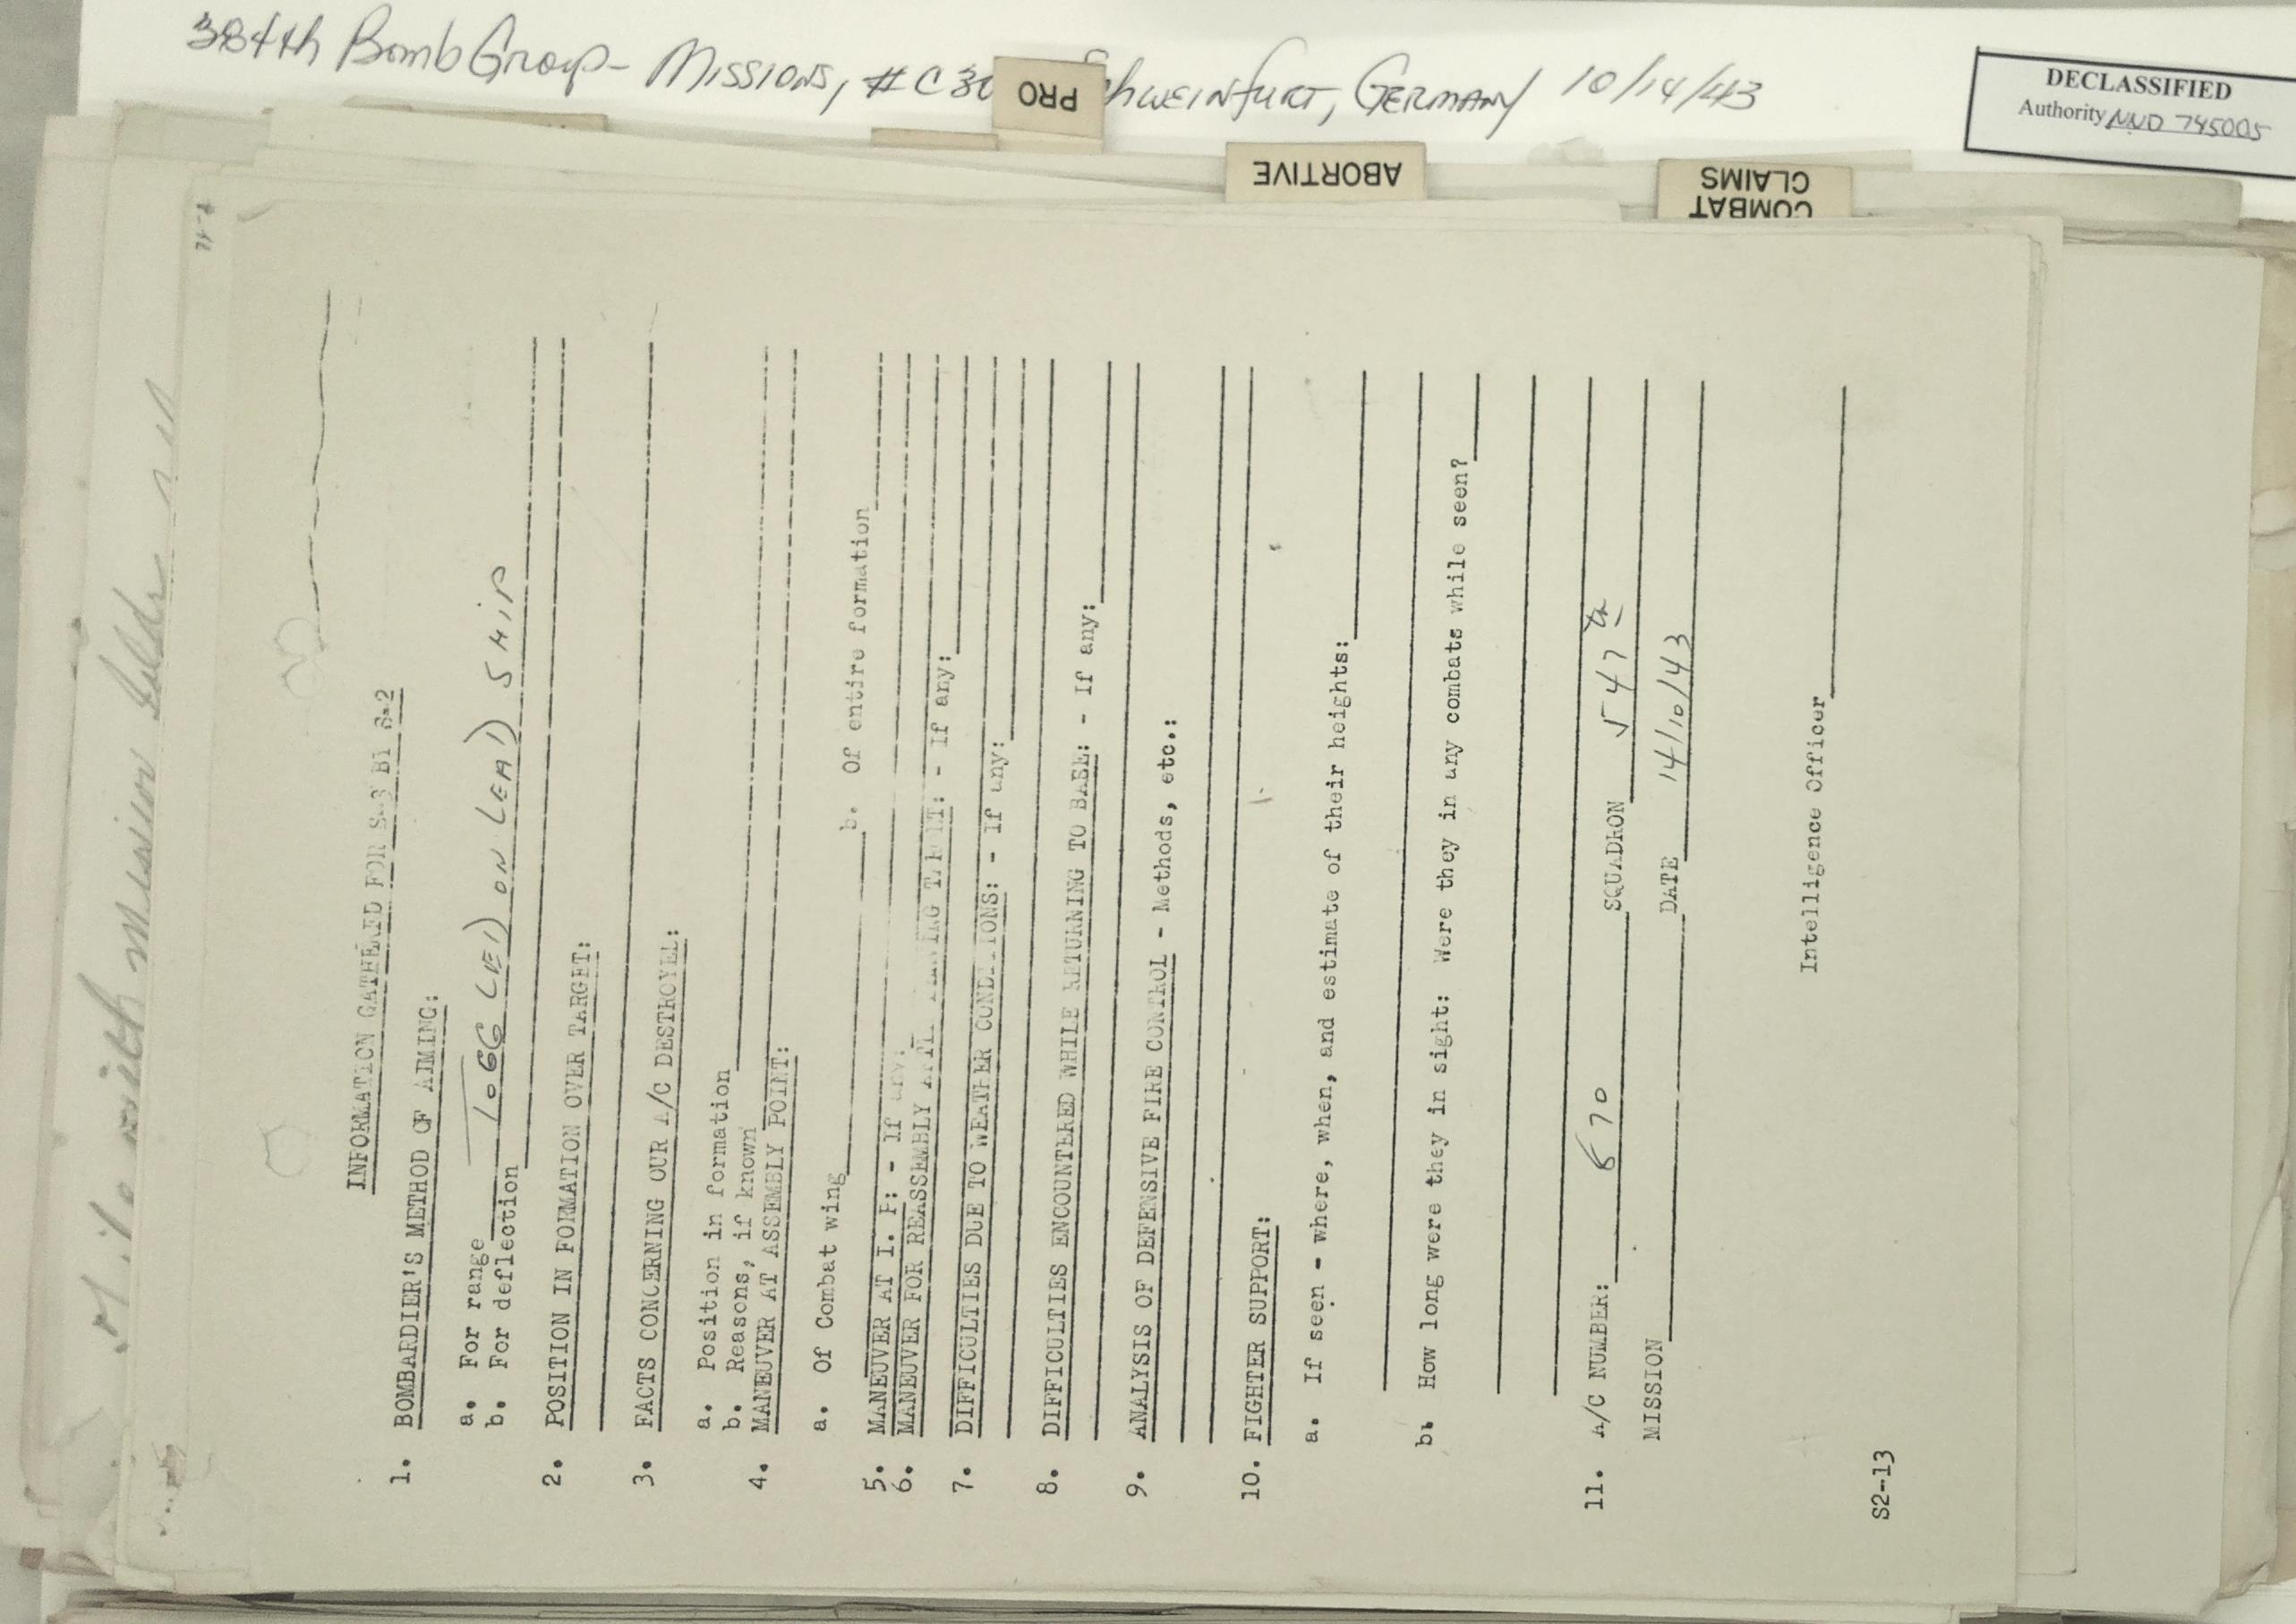 384th Bomb Group - Missions, #C30 Schweinfurt, Germany 10/14/43
DECLASSIFIED
Authority NND 745005
PRO
ABORTIVE
COMBAT
CLAIMS
File with Mission
INFORMATION GATHERED FOR S-3 BY S-2
1. BOMBARDIER'S METHOD OF AIMING:
a. For range TOGGLED ON LEAD SHIP
b. For deflection
2. POSITION IN FORMATION OVER TARGET:
3. FACTS CONCERNING OUR A/C DESTROYED:
a. Position in formation
b. Reasons, if known
4. MANEUVER AT ASSEMBLY POINT:
a. Of Combat wing b. Of entire formation
5. MANEUVER AT I. P: - If any:
6. MANEUVER FOR REASSEMBLY AFTER LEAVING TARGET: - If any:
7. DIFFICULTIES DUE TO WEATHER CONDITIONS: - If any:
8. DIFFICULTIES ENCOUNTERED WHILE RETURNING TO BASE: - If any:
9. ANALYSIS OF DEFENSIVE FIRE CONTROL - Methods, etc.:
10. FIGHTER SUPPORT:
a. If seen - where, when, and estimate of their heights:
b. How long were they in sight: Were they in any combats while seen?
11. A/C NUMBER: 870 SQUADRON 547th
MISSION DATE 14/10/43
Intelligence Officer
S2-13